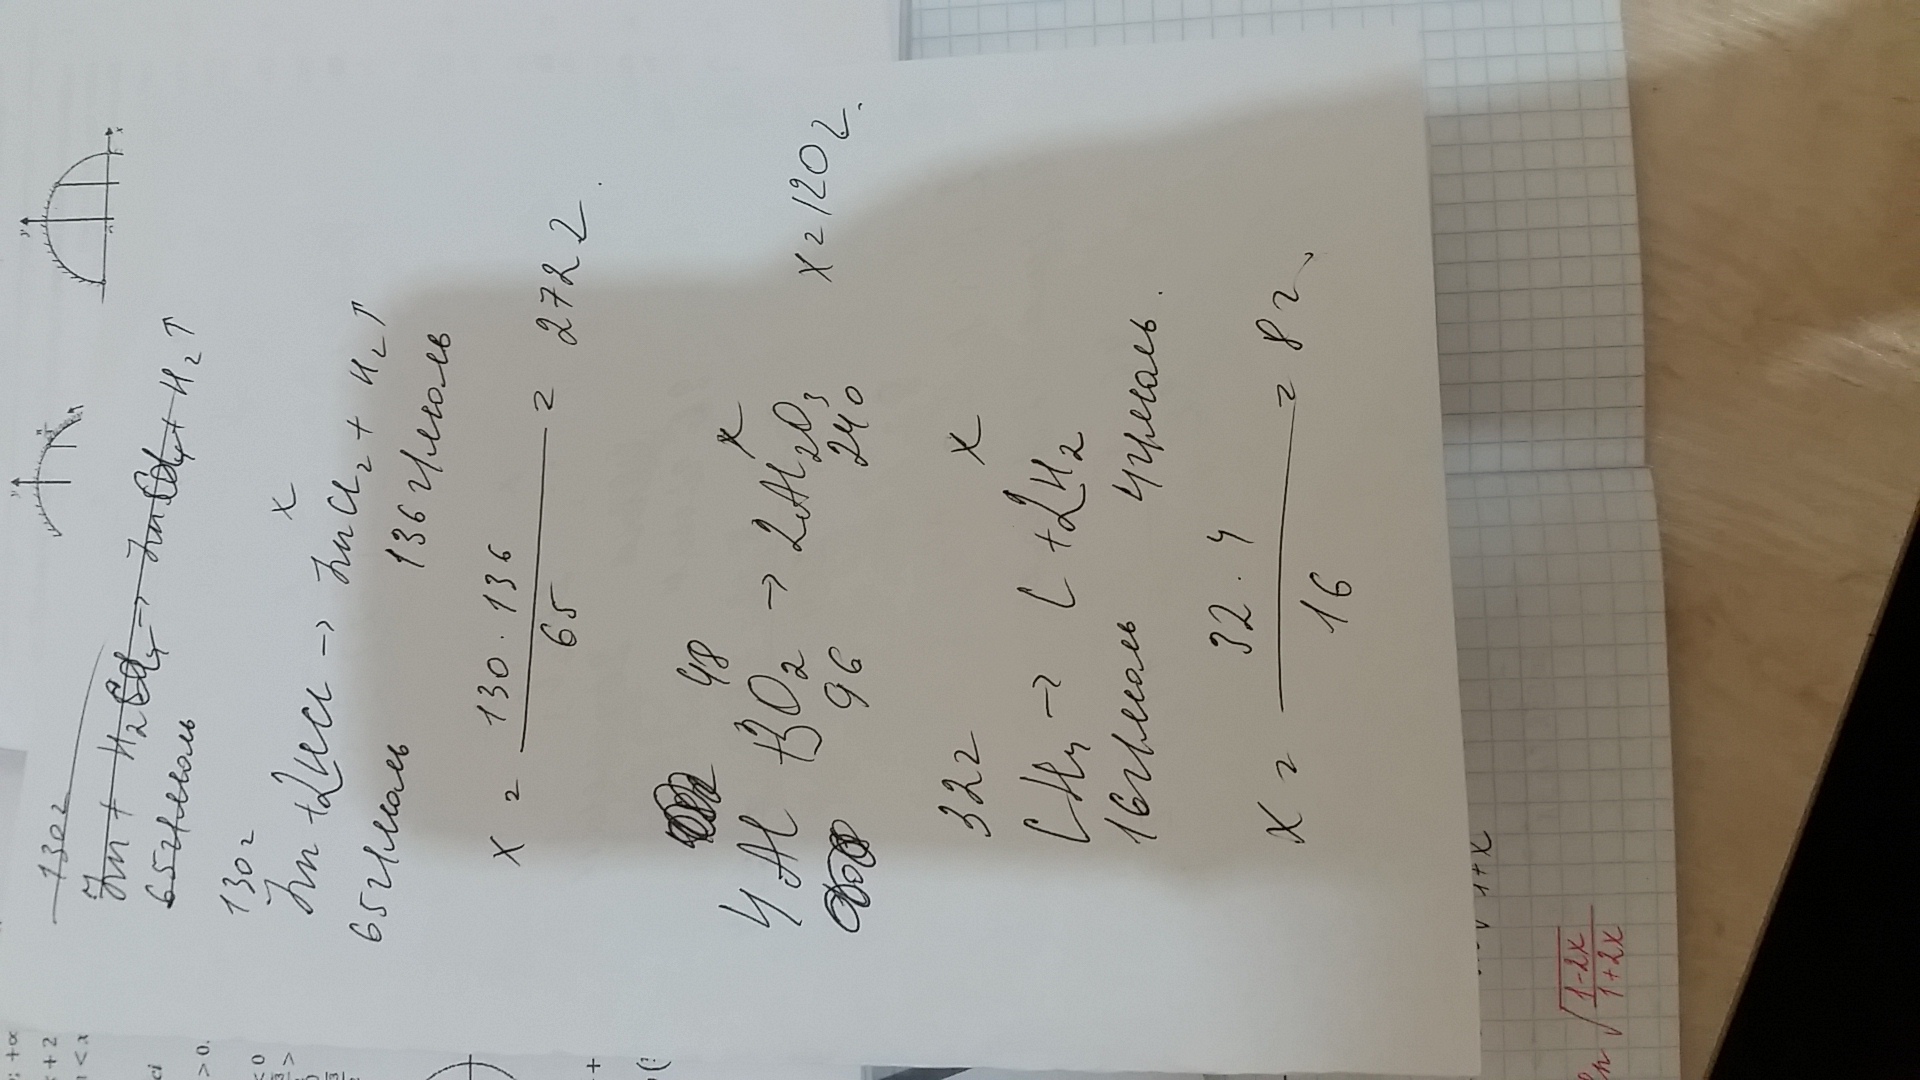 130 г
Zn + H₂SO₄ → ZnSO₄ + H₂↑
65 г/моль
130 г x
Zn + 2HCl → ZnCl₂ + H₂↑
65 г/моль 136 г/моль
x = 130 · 136 / 65 = 272 г.
48 x
4Al + 3O₂ → 2Al₂O₃
96 240
x = 120 г.
32 г x
CH₄ → C + 2H₂
16 г/моль 4 г/моль.
x = 32 · 4 / 16 = 8 г.
√(1-2x / 1+2x)
1+x
; +∞
+ 2
< x
> 0.
< 0